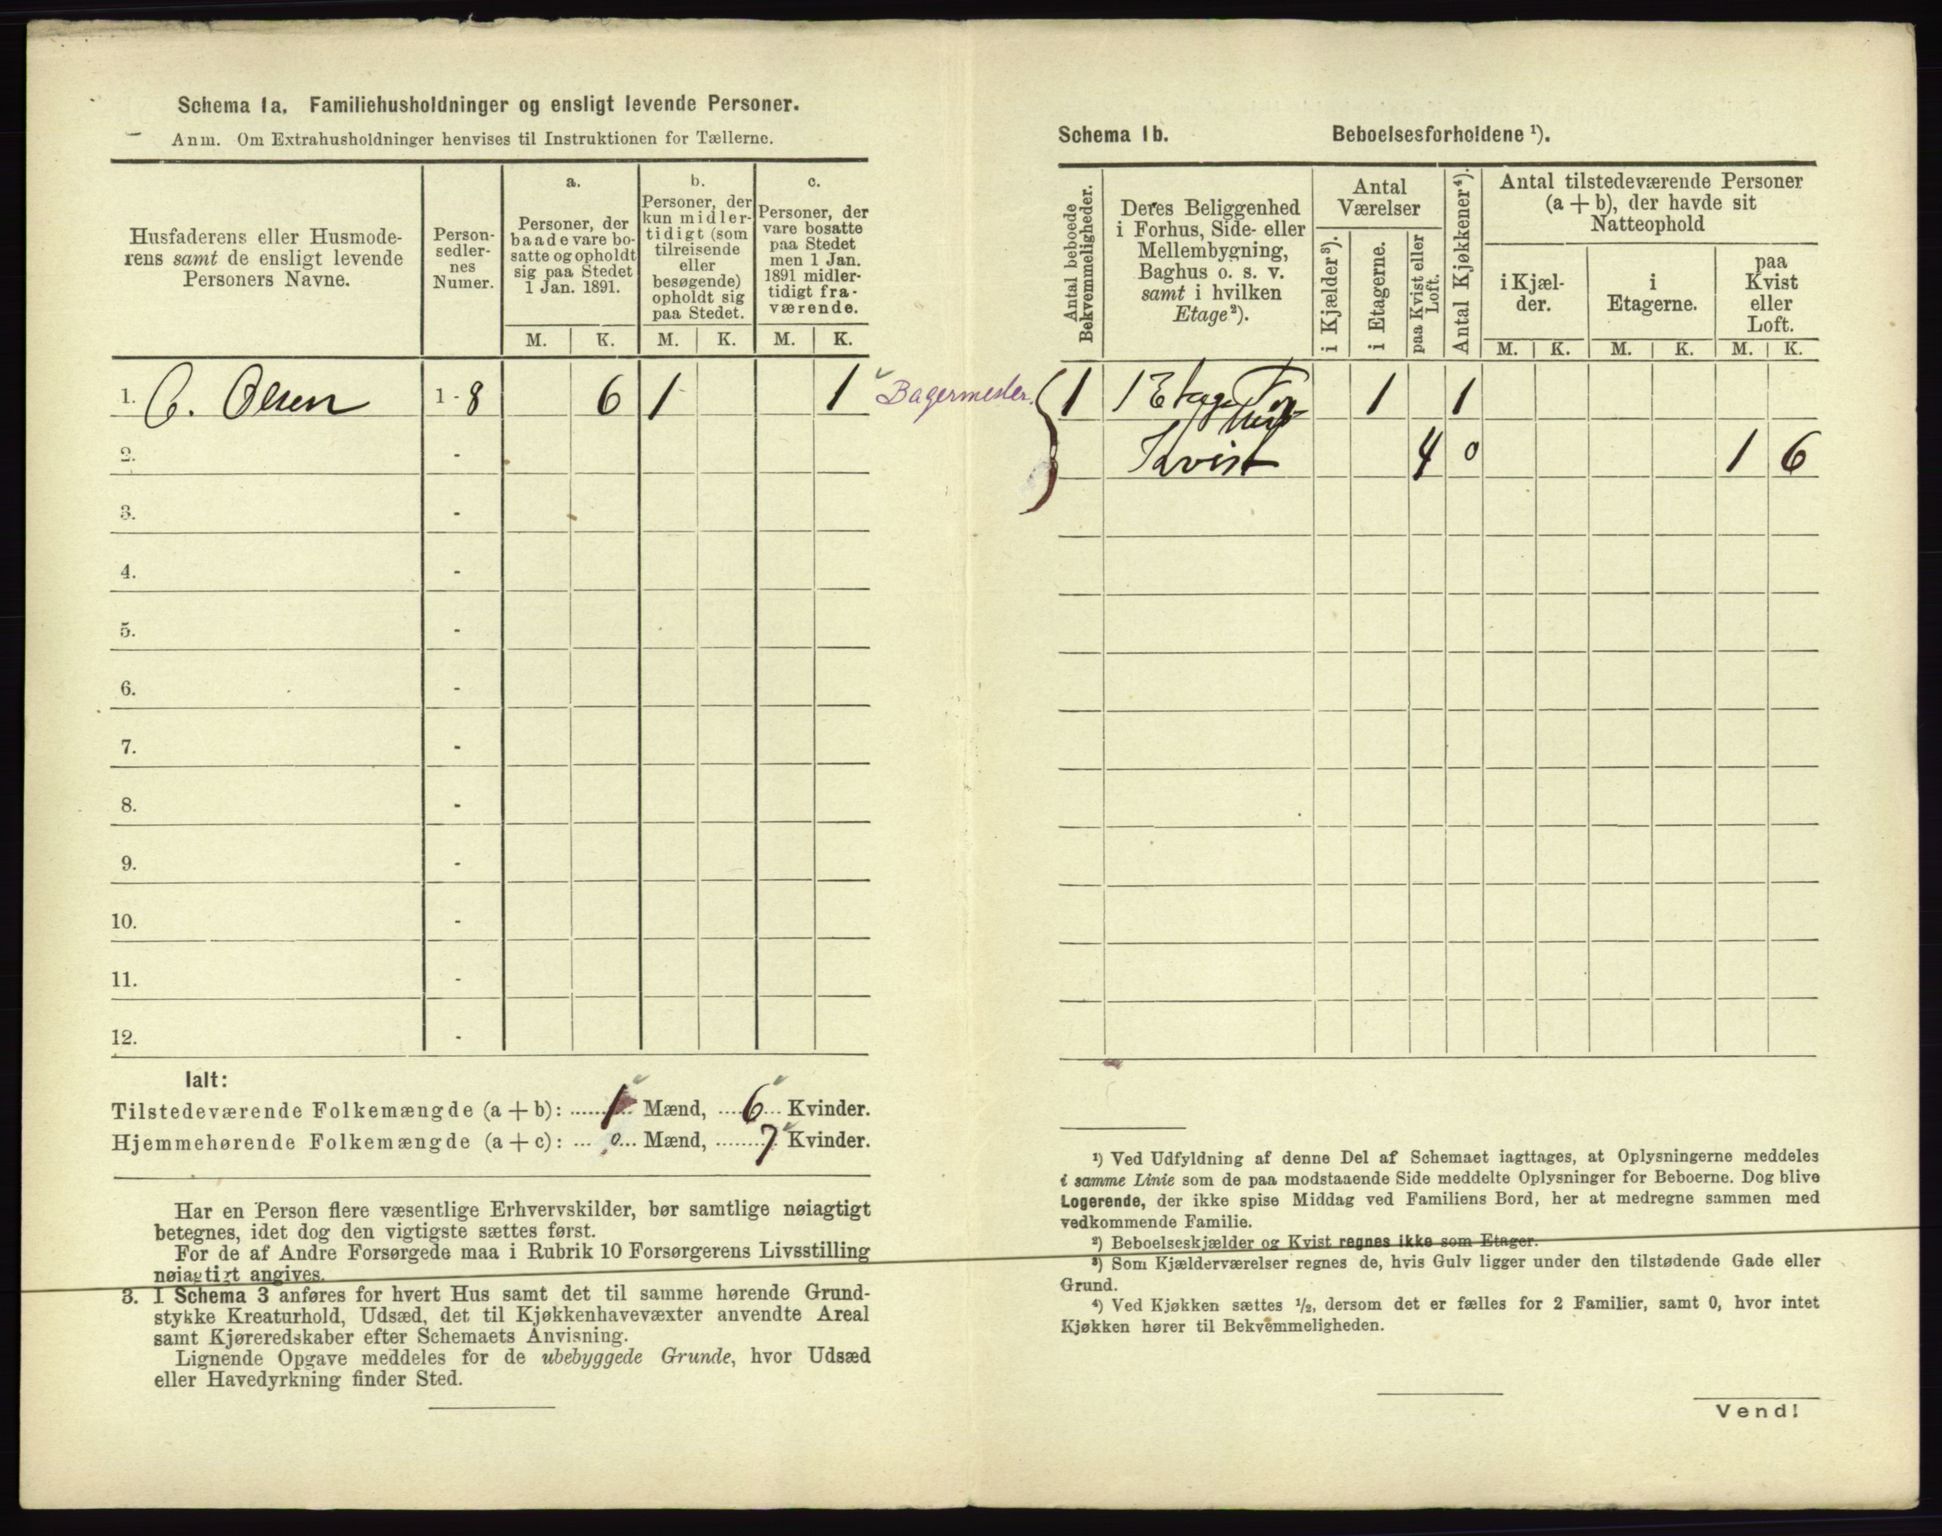 Schema 1a. Familiehusholdninger og ensligt levende Personer.
Anm. Om Extrahusholdninger henvises til Instruktionen for Tællerne.
Husfaderens eller Husmode-
rens samt de ensligt levende
Personers Navne.
Person-
sedler-
nes
Numer.
a.
Personer, der
baade vare bo-
satte og opholdt
sig paa Stedet
1 Jan. 1891.
b.
Personer, der
kun midler-
tidigt (som
tilreisende
eller
besøgende)
opholdt sig
paa Stedet.
c.
Personer, der
vare bosatte
paa Stedet
men 1 Jan.
1891 midler-
tidigt fra-
værende.
M. K. M. K. M. K.
1. C. Olsen 1-8 6 1 1 Bagermester.
2. -
3. -
4. -
5. -
6. -
7. -
8. -
9. -
10. -
11. -
12. -
Ialt:
Tilstedeværende Folkemængde (a+b): 1 Mænd, 6 Kvinder.
Hjemmehørende Folkemængde (a+c): 0 Mænd, 7 Kvinder.
Har en Person flere væsentlige Erhvervskilder, bør samtlige nøiagtigt
betegnes, idet dog den vigtigste sættes først.
For de af Andre Forsørgede maa i Rubrik 10 Forsørgerens Livsstilling
nøiagtigt angives.
3. I Schema 3 anføres for hvert Hus samt det til samme hørende Grund-
stykke Kreaturhold, Udsæd, det til Kjøkkenhavevæxter anvendte Areal
samt Kjøreredskaber efter Schemaets Anvisning.
Lignende Opgave meddeles for de ubebyggede Grunde, hvor Udsæd
eller Havedyrkning finder Sted.
Schema 1b. Beboelsesforholdene ¹).
Antal beboede
Bekvemmeligheder.
Deres Beliggenhed
i Forhus, Side- eller
Mellembygning,
Baghus o. s. v.
samt i hvilken
Etage²).
Antal
Værelser
i Kjælder³).
i Etagerne.
paa Kvist eller
Loft.
Antal Kjøkkener⁴).
Antal tilstedeværende Personer
(a + b), der havde sit
Natteophold
i Kjæl-
der.
i
Etagerne.
paa
Kvist
eller
Loft.
M. K. M. K. M. K.
1 1 Etage For 1 1
hus
Kvist 4 0 1 6
¹) Ved Udfyldning af denne Del af Schemaet iagttages, at Oplysningerne meddeles
i samme Linie som de paa modstaaende Side meddelte Oplysninger for Beboerne. Dog blive
Logerende, der ikke spise Middag ved Familiens Bord, her at medregne sammen med
vedkommende Familie.
²) Beboelseskjælder og Kvist regnes ikke som Etager.
³) Som Kjælderværelser regnes de, hvis Gulv ligger under den tilstødende Gade eller
Grund.
⁴) Ved Kjøkken sættes ½, dersom det er fælles for 2 Familier, samt 0, hvor intet
Kjøkken hører til Bekvemmeligheden.
Vend!